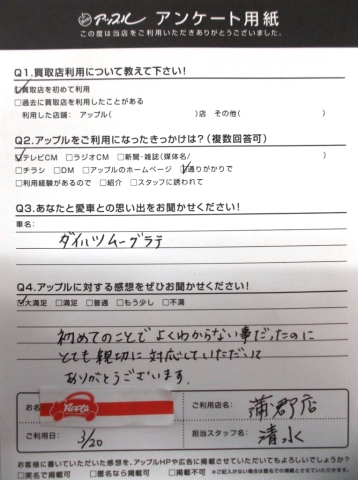 アップル アンケート用紙
この度は当店をご利用いただきありがとうございました。
Q1.買取店利用について教えて下さい!
☑買取店を初めて利用
□過去に買取店を利用したことがある
利用した店舗: アップル( )店 その他( )
Q2.アップルをご利用になったきっかけは?(複数回答可)
☑テレビCM □ラジオCM □新聞・雑誌(媒体名/ )
□チラシ □DM □アップルのホームページ ☑通りがかりで
□利用経験があるので □紹介 □スタッフに誘われて
Q3.あなたと愛車との思い出をお聞かせください!
車名:
ダイハツムーヴラテ
Q4.アップルに対する感想をぜひお聞かせください!
☑大満足 □満足 □普通 □もう少し □不満
初めてのことでよくわからない事だったのに
とても親切に対応していただいて
ありがとうございます。
お名 Apple ご利用店名: 蒲郡店
ご利用日: 3/20 担当スタッフ名: 清水
お客様に書いていただいた感想を、アップルHPや広告に掲載させていただいてもよろしいでしょうか?
□実名で掲載可 □匿名なら掲載可 □掲載不可 ※ご記入がない場合は匿名での掲載をさせていただきます。